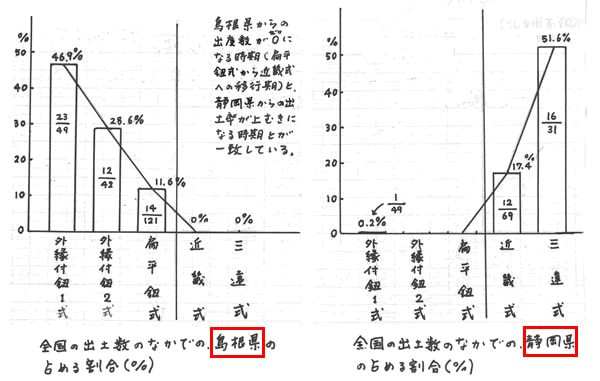 %
50
40
30
20
10
0
46.9%
23
49
28.6%
12
42
11.6%
14
121
0%
0%
外縁付鈕1式
外縁付鈕2式
扁平鈕式
近畿式
三遠式
島根県からの
出度数がゼロ0に
なる時期(扁平
鈕式から近畿式
への移行期)と、
静岡県からの出
土率が上むきに
なる時期とが
一致している。
全国の出土数のなかでの、島根県の
占める割合(%)
%
50
40
30
20
10
0
0.2%
1
49
17.4%
12
69
51.6%
16
31
外縁付鈕1式
外縁付鈕2式
扁平鈕式
近畿式
三遠式
全国の出土数のなかでの、静岡県
の占める割合(%)